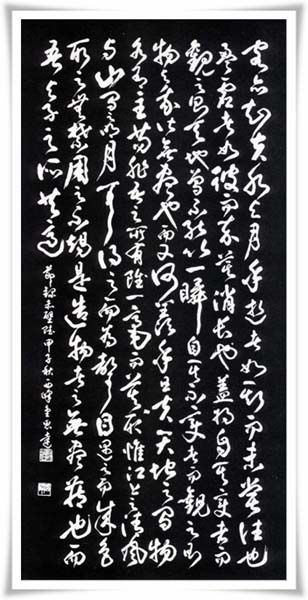 客亦知夫水與月乎逝者如斯而未嘗往也
盈虛者如彼而卒莫消長也蓋將自其變者而
觀之則天地曾不能以一瞬自其不變者而觀之則
物與我皆無盡也而又何羨乎且夫天地之間物
各有主苟非吾之所有雖一毫而莫取惟江上之清風
與山間之明月耳得之而為聲目遇之而成色
取之無禁用之不竭是造物者之無盡藏也而
吾與子之所共適 節錄赤壁賦 甲子秋